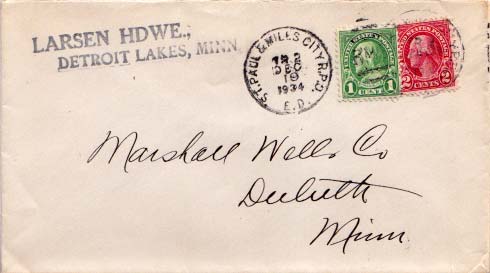 LARSEN HDWE.,
DETROIT LAKES, MINN.
ST. PAUL & MILES CITY R.P.O.
TR 2
DEC
19
1934
E.D.
UNITED STATES POSTAGE
1 CENT 1
2 CENTS 2
Marshall Wells Co
Duluth
Minn